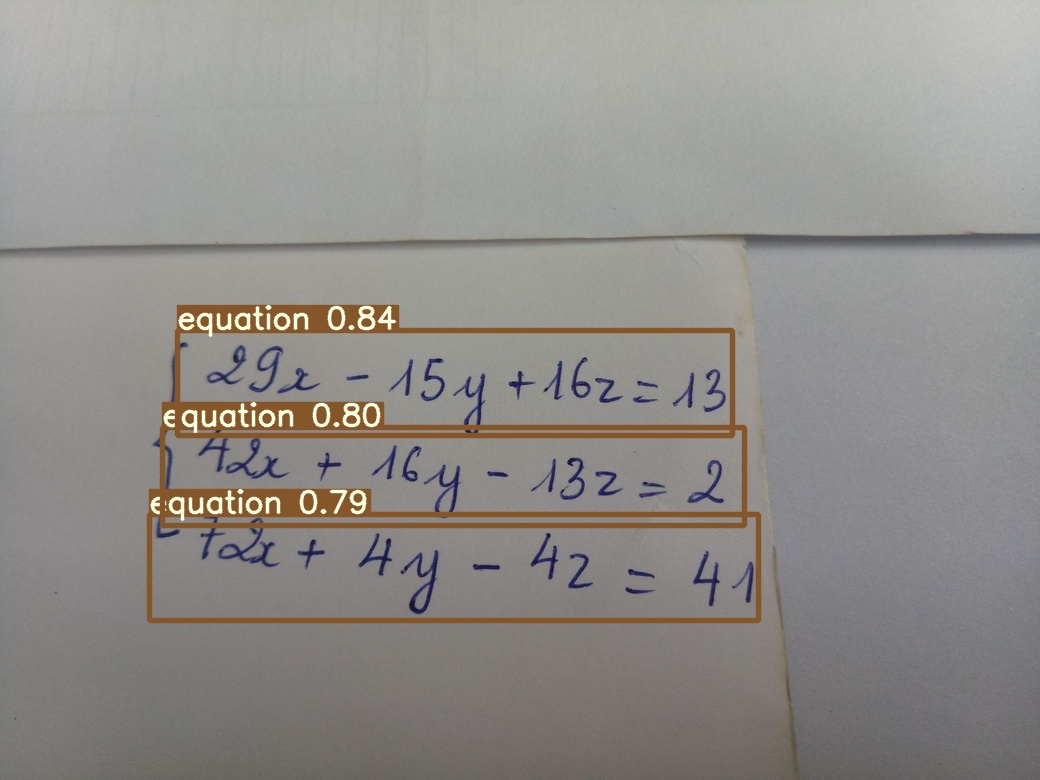 equation 0.84
29x - 15y + 16z = 13
equation 0.80
42x + 16y - 13z = 2
equation 0.79
72x + 4y - 4z = 41